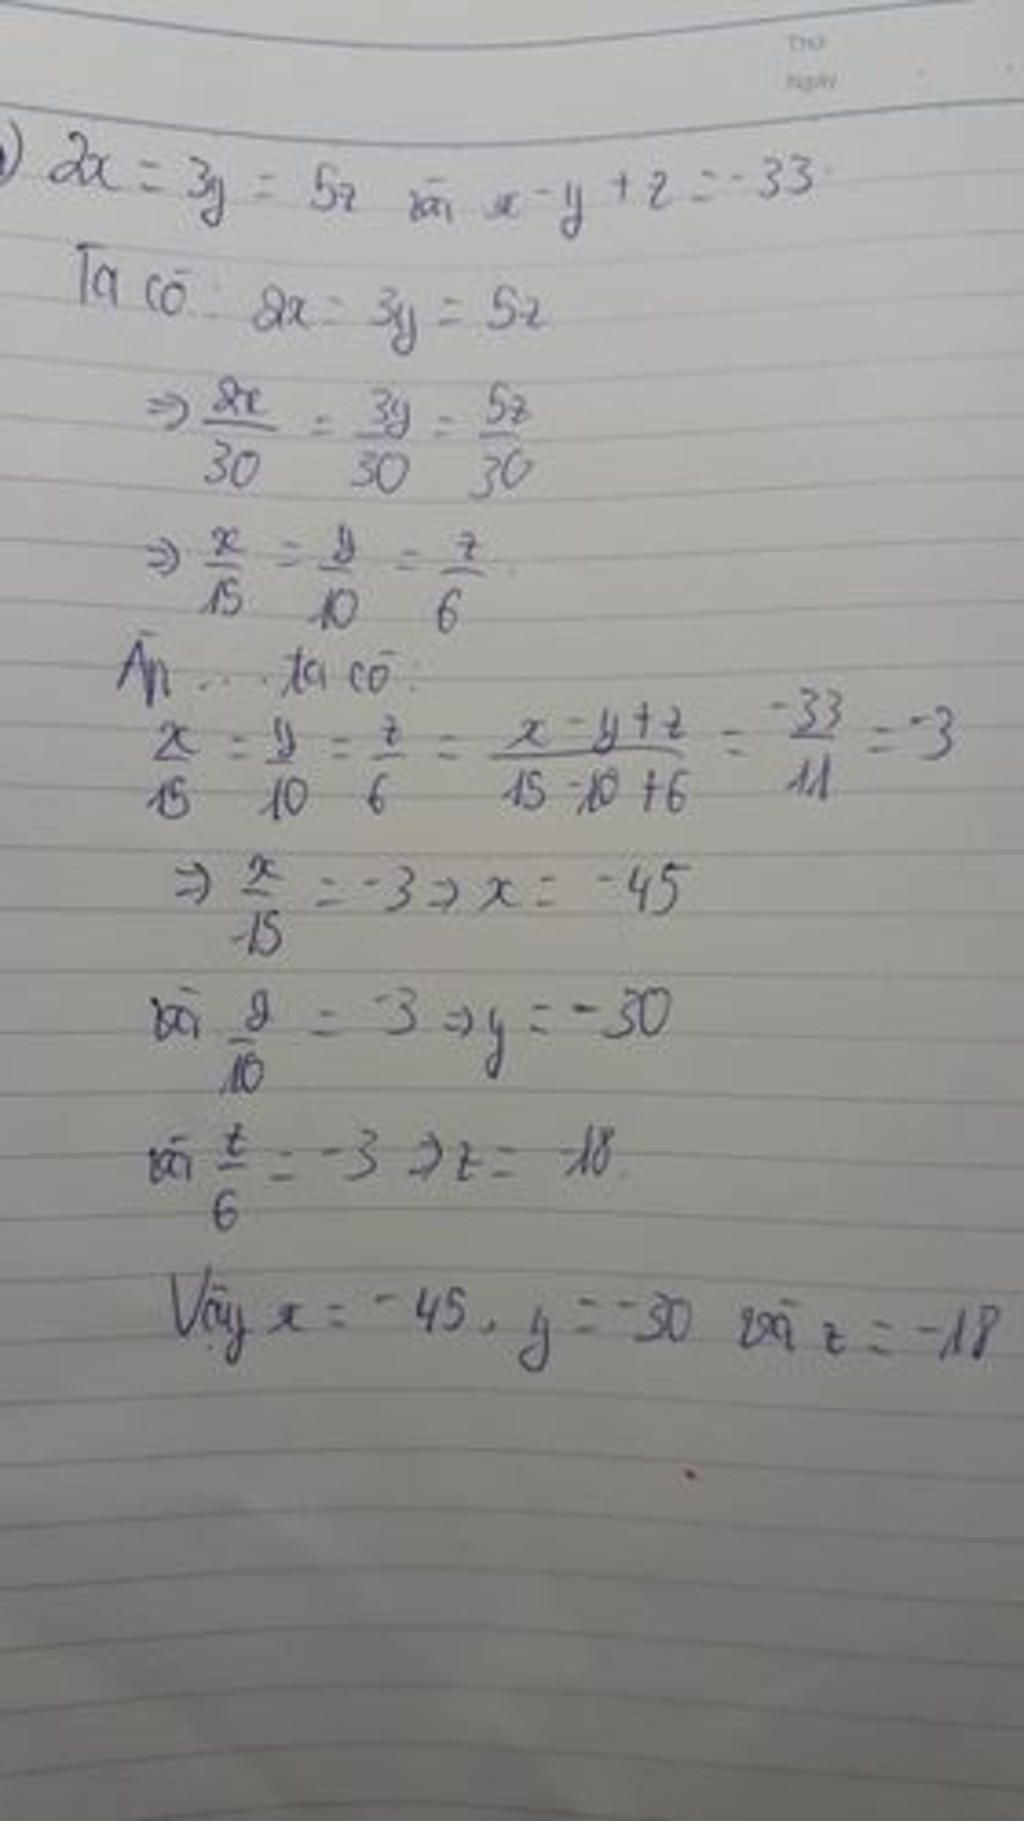 Thứ
Ngày
) 2x = 3y = 5z và x - y + z = -33
Ta có: 2x = 3y = 5z
⇒ 2x/30 = 3y/30 = 5z/30
⇒ x/15 = y/10 = z/6
Áp .... ta có:
x/15 = y/10 = z/6 = (x - y + z)/(15 - 10 + 6) = -33/11 = -3
⇒ x/15 = -3 ⇒ x = -45
và y/10 = -3 ⇒ y = -30
và z/6 = -3 ⇒ z = -18
Vậy x = -45, y = -30 và z = -18